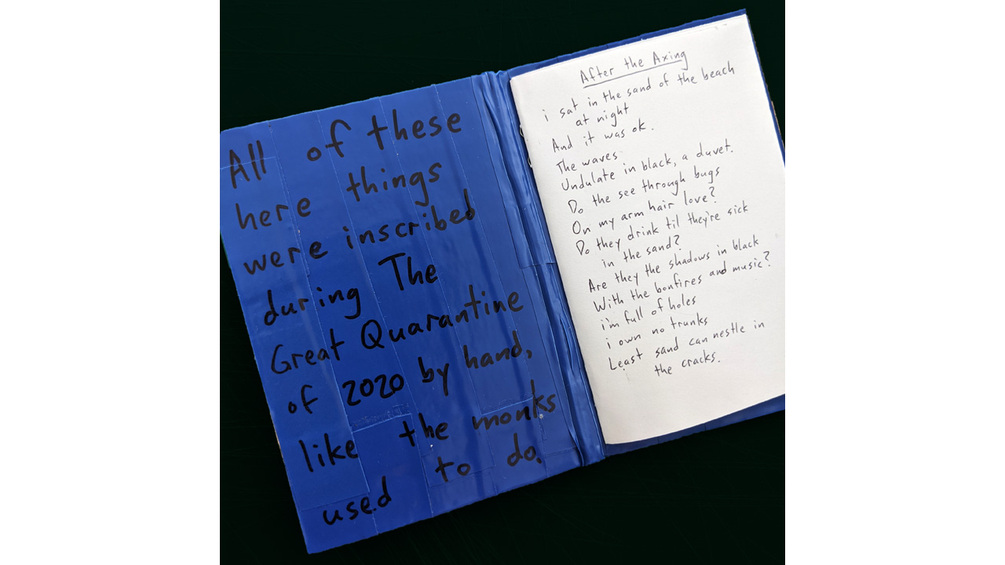 All of these
here things
were inscribed
during The
Great Quarantine
of 2020 by hand,
like the monks
used to do.
After the Axing
i sat in the sand of the beach
at night
And it was ok.
The waves
Undulate in black, a duvet.
Do the see through bugs
On my arm hair love?
Do they drink til they're sick
in the sand?
Are they the shadows in black
With the bonfires and music?
i'm full of holes
i own no trunks
Least sand can nestle in
the cracks.